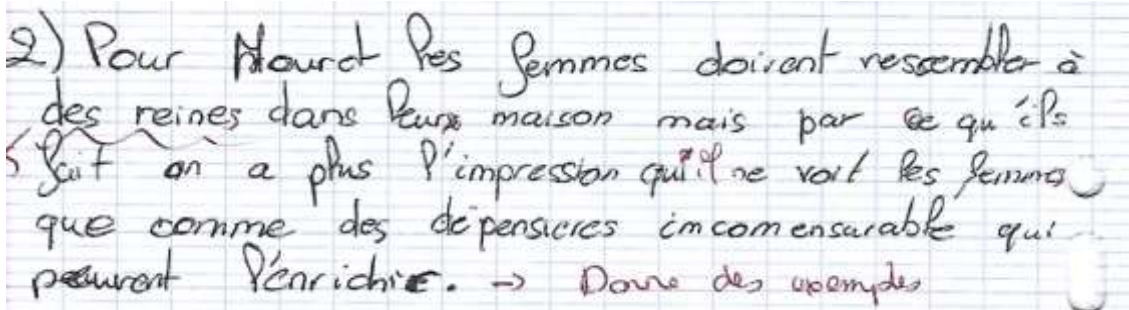 2) Pour Mouret les femmes doivent ressembler à
des reines dans leurs maison mais par ce qu'ils
fait on a plus l'impression qu'il ne voit les femmes
que comme des dépensieres incomensurable qui
peuvent l'enrichir. → Donne des exemples